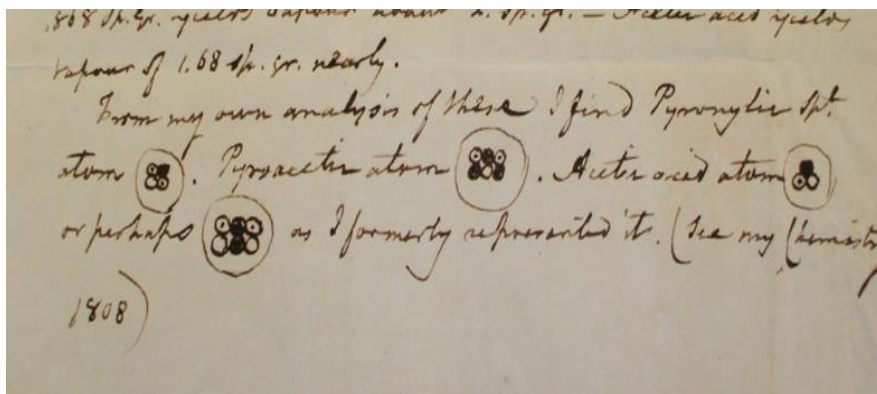 .868 sp. gr. yields vapour about 2. sp. gr. — Acetic acid yields
vapour of 1.68 sp. gr. nearly.
From my own analysis of these I find Pyroxylic Spt.
atom . Pyroacetic atom . Acetic acid atom
or perhaps as I formerly represented it. (See my Chemistry
1808)